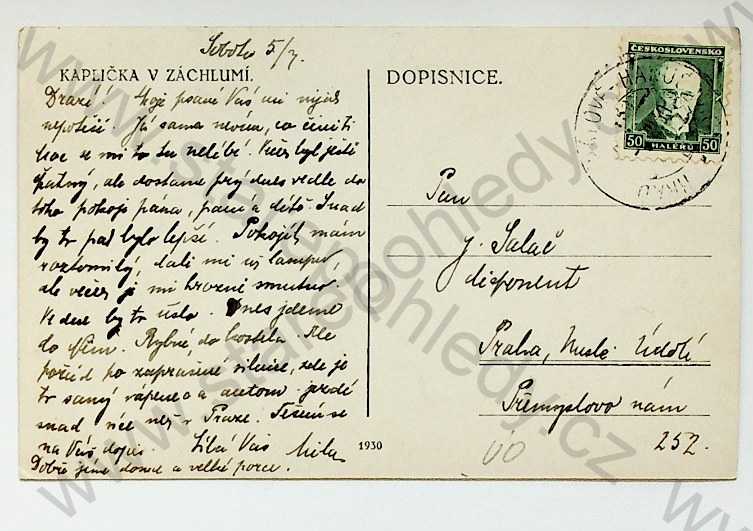 Sobota 5/7.
KAPLIČKA V ZÁCHLUMÍ.
Drazí! Moje psaní Vás asi nijak
nepotěší. Já sama nevím, co činiti
tak se mi to tu nelíbí. Včera byl ještě
špatný, ale dostane prý dnes vedle do
toho pokoje pána, paní a dítě. Snad
by to pak bylo lepší. Pokojík mám
roztomilý, dali mi už lampu,
ale večer je mi hrozně smutno.
Ve dne by to ušlo. Dnes jdeme
do Něm. Rybné, do kostela. Ale
pořád po zaprášené silnici, zde je
to samý vápenec a auta jezdí
snad více než v Praze. Těším se
na Váš dopis. Líbá Vás Mila
Dobře jíme dosud a velké porce.
1930
DOPISNICE.
ČESKOSLOVENSKO
50 HALÉŘŮ 50
Pan
J. Salač
disponent
Praha, Nusle Údolí
Přemyslovo nám
252.
www.stare-pohledy.cz